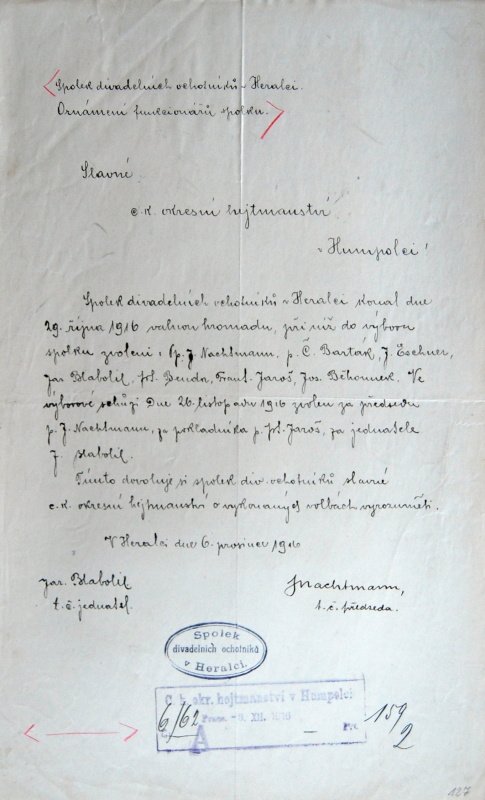 Spolek divadelních ochotníků v Heralci.
Oznámení funkcionářů spolku.
Slavné
c. k. okresní hejtmanství
v Humpolci!
Spolek divadelních ochotníků v Heralci konal dne
29. října 1916 valnou hromadu, při níž do výboru
spolku zvoleni: Pp. J. Nachtmann, p. Č. Barták, J. Eschner,
Jar. Blabolil, frt. Benda, Frant. Jaroš, Jos. Běhounek. Ve
výborové schůzi dne 26. listopadu 1916 zvolen za předsedu
p. J. Nachtmann, za pokladníka p. frt. Jaroš, za jednatele
J. Blabolil.
Tímto dovoluje si spolek div. ochotníků slavné
c. k. okresní hejtmanství o vykonaných volbách vyrozuměti.
V Heralci dne 6. prosince 1916
Jar. Blabolil
t. č. jednatel.
JNachtmann,
t. č. předseda.
Spolek
divadelních ochotníků
v Heralci.
C. k. okr. hejtmanství v Humpolci
6/62 Praes. XII. 1916 Př. 159
A 2
127